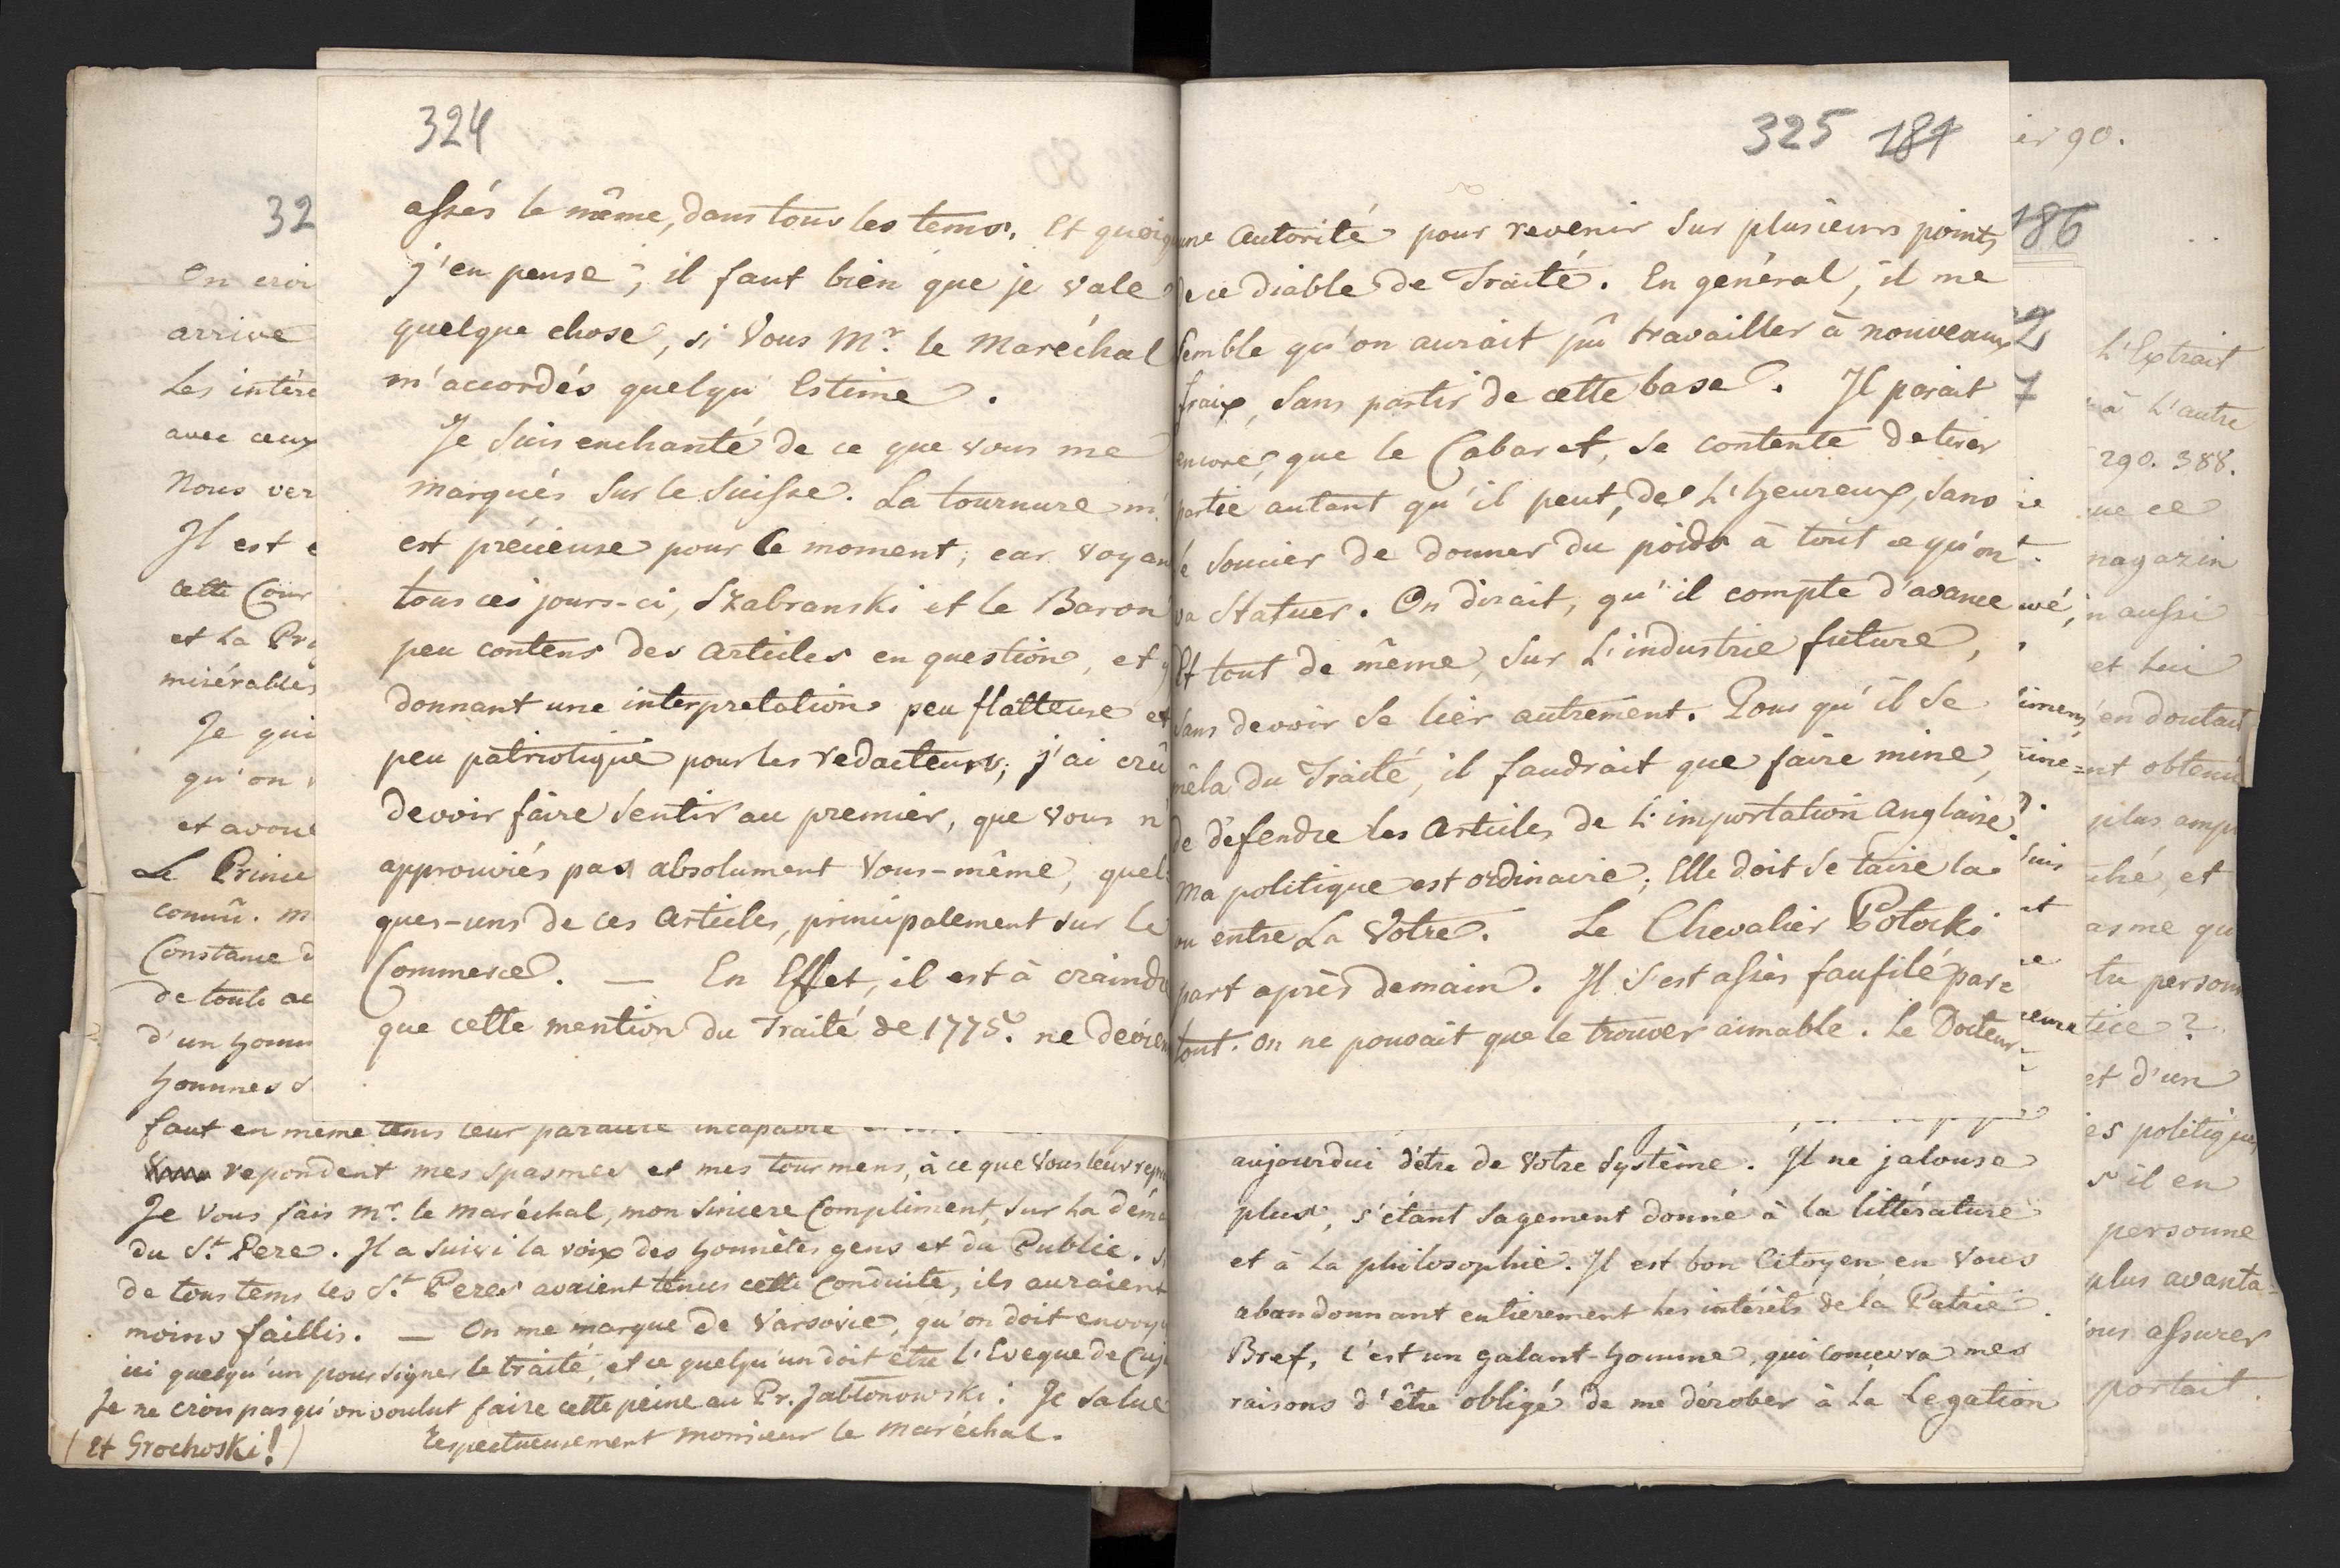 324
assés le même, dans tous les tems. Et
j'en pense; il faut bien que je vale
quelque chose, si Vous Mr. le Maréchal
m'accordés quelqu' Estime.
Je suis enchanté de ce que vous me
marqués sur le Suisse. La tournure m'
est précieuse pour le moment; car
tous ces jours-ci, Szabranski et le Baron
peu contens des Articles en question, et
donnant une interpretation peu flatteuse et
peu patriotique pour les redacteurs; j'ai crû
devoir faire sentir au premier, que vous n'
approuviés pas absolument Vous-même, quel=
ques-uns de ces Articles, principalement sur le
Commerce. — En Effet, il est à craindre
que cette mention du Traité de 1775. ne
32
On
arrive
Les
avec ceux
Nous
Il est
cette Cour
et La
misérables
Je
qu'on
et
Le Prince
connû.
Constance
de toute
d'un
hommes
faut en même tems leur
repondent mes spasmes et mes tourmens, à ce que Vous leur
Je Vous fais Mr. le Maréchal, mon sincere Compliment, sur La
du St. Pere. Il a suivi la voix des honnêtes gens et du Public.
de tous tems les St. Peres avaient tenus cette Conduite, ils auraient
moins faillis. — On me marque de Varsovie, qu'on doit
ici quelqu'un pour signer le traité, et ce quelqu'un doit être l'Eveque de
Je ne crois pas qu'on voulut faire cette peine au Pr. Jablonowski. Je salue
(Et Grochoski!) respectueusement Monsieur le Maréchal.
325 181
une Autorité pour revenir sur plusieurs points
de ce diable de Traité. En général, il me
semble qu'on aurait pû travailler à nouveaux
fraix, sans partir de cette base. Il parait
encore, que le Cabaret, se contente de tirer
partie autant qu'il peut, de L'heureux, sans
se soucier de donner du poids à tout ce qu'on
va Statuer. On dirait, qu'il compte d'avance
Et tout de même, sur L'industrie future,
sans devoir se lier autrement. Pour qu'il se
mêla du Traité, il faudrait que faire mine,
de défendre les Articles de L'importation Anglaise?
Ma politique est ordinaire; Elle doit se taire la
ou entre La Vôtre. Le Chevalier Potocki
part après demain. Il s'est assés faufilé par=
tout. On ne pouvait que le trouver aimable. Le Docteur
aujourdui d'être de Votre Système. Il ne jalouse
plus, s'étant sagement donné à la littérature
et à La philosophie. Il est bon Citoyen en Vous
abandonnant entierement les intérêts de la Patrie.
Bref, c'est un galant-homme, qui concevra mes
raisons d'être obligé de me dérober à La Legation
90.
186
L'Extrait
à L'autre
290. 388.
aussi
et Lui
en doutait
obtenu
et
et d'un
s'il en
personne
plus avanta=
assurer
portait.